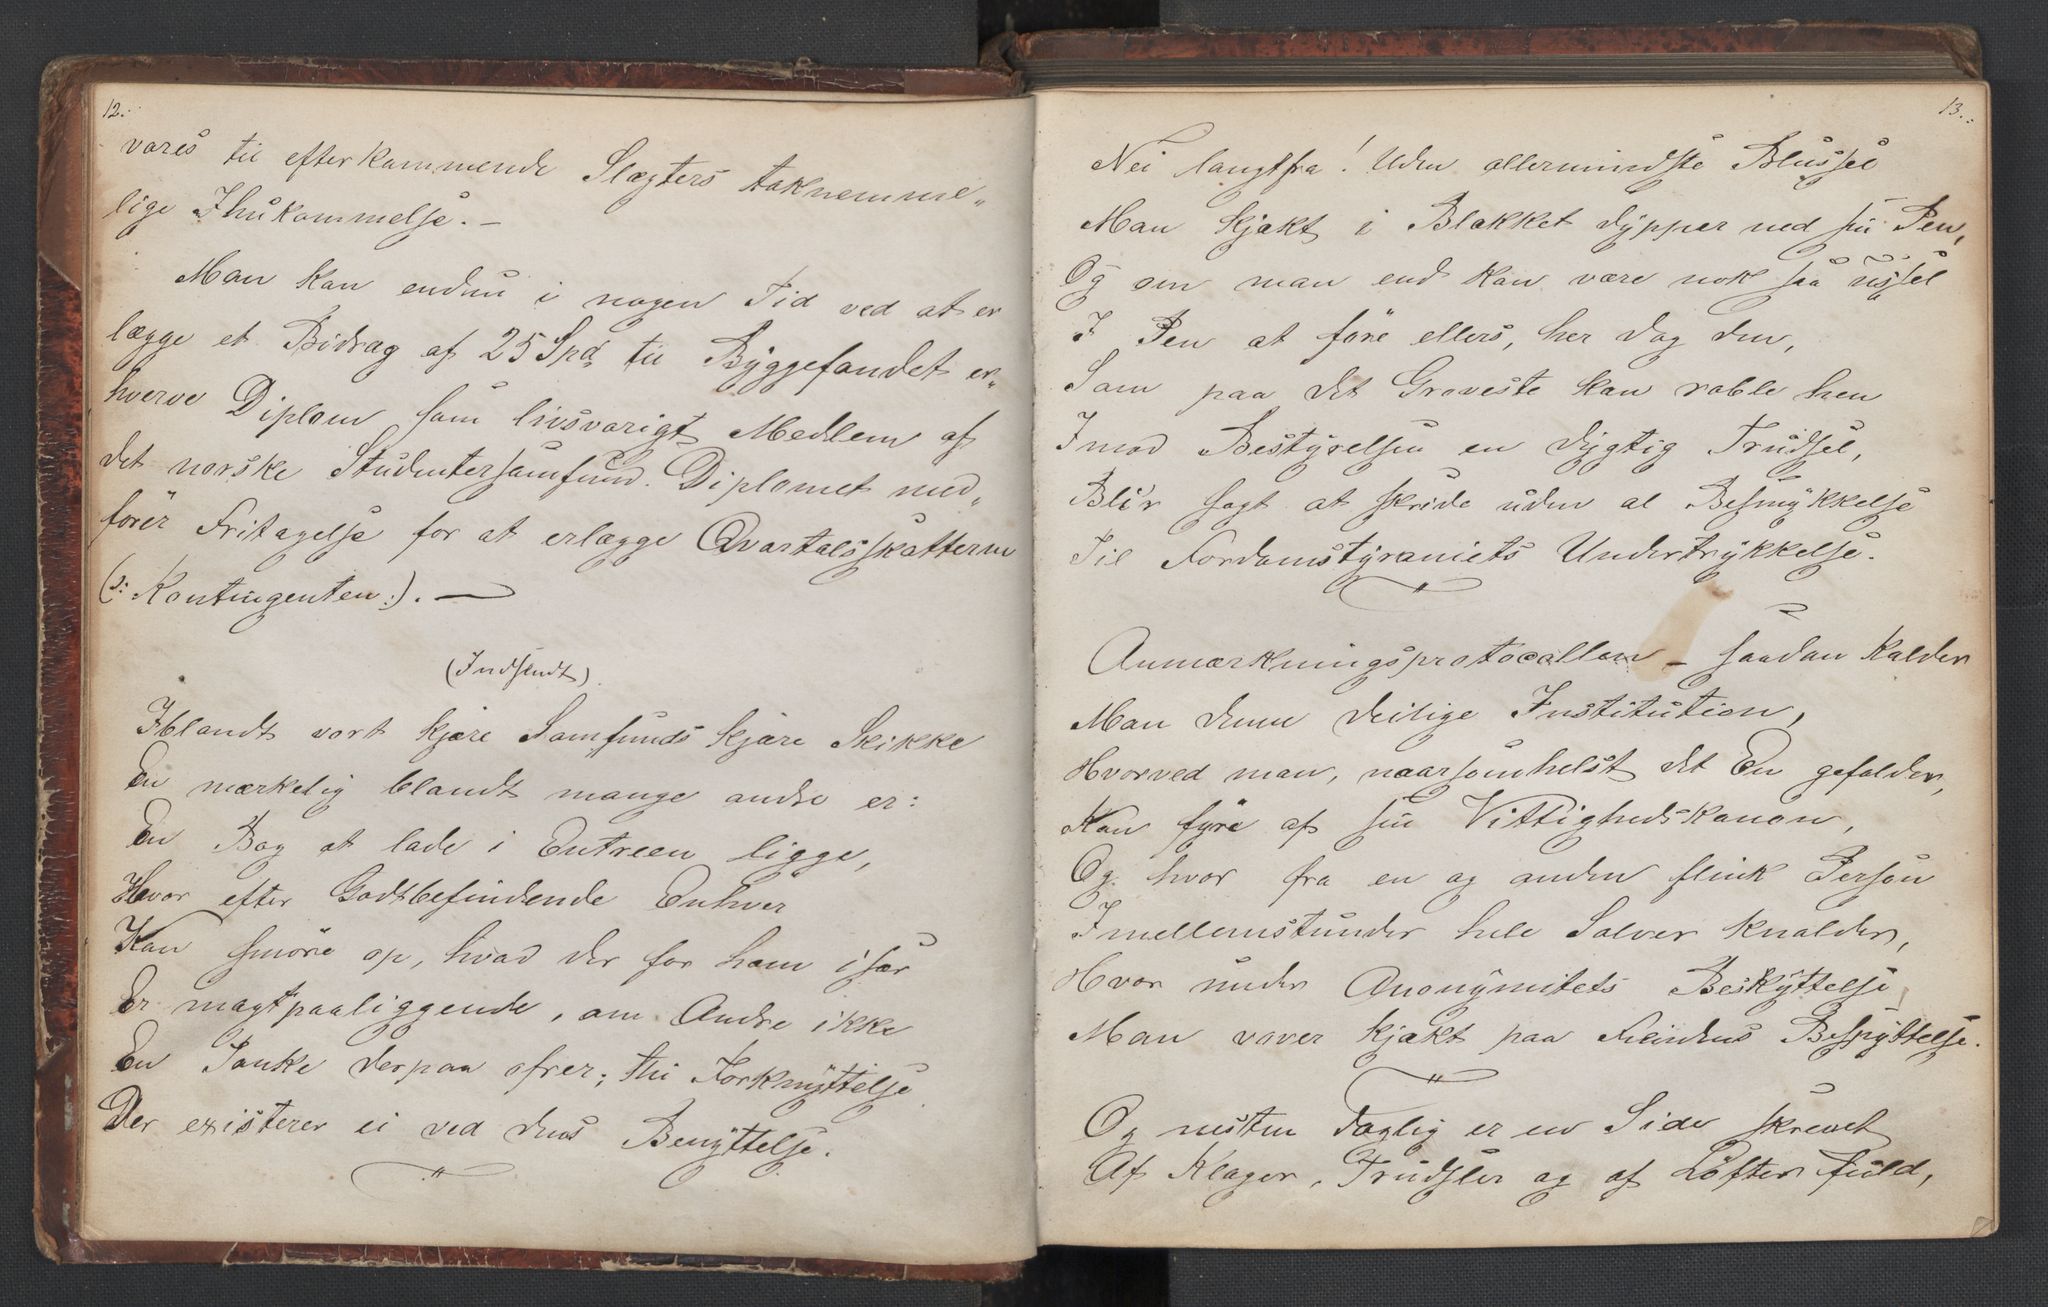 12.
vares til efterkommende Slægters taknemme„
lige Ihukommelse. —
Man kan endnu i nogen Tid ved at er
lægge et Bidrag af 25 Spd. til Byggefondet er„
hverve Diplom som livsvarigt Medlem af
det norske Studentersamfund. Diplomet med„
förer Fritagelse for at erlægge Qvartalsskatterne
(ɔ: Kontingenten:). —
(Indsendt).
Iblandt vort kjære Samfunds kjære Skikke
En mærkelig blandt mange andre er:
En Bog at lade i Entreen ligge,
Hvor efter Godtbefindende Enhver
Kan smöre op, hvad der for ham især
Er magtpaaliggende, om Andre ikke
En Tanke derpaa ofrer; thi Forknyttelse
Der existerer ei ved dens Benyttelse.
13.
Nei langtfra! Uden allermindste Blussel
Man kjækt i Blækket dypper ned sin Pen,
Og om man end kan være nok saa ussel
I Pen at före ellers, her dog den,
Som paa det Groveste kan rable hen
Imod Bestyrelsen en dygtig Trudsel,
Bli'r sagt at skride uden al Besmykkelse
Til Fordomstyranniets Undertrykkelse.
Anmærkningsprotocollen — saadan kalder
Man denne deilige Institution,
Hvorved man, naarsomhelst det En gefalder,
Kan fyre af sin Vittighedskanon,
Og hvor fra en og anden flink Person
Imellemstunder hele Salver knalder,
Hvor under Anonymitets Beskyttelse
Man vover kjækt paa Fiendens Bespyttelse.
Og nesten daglig er en Side skrevet
Af Klager, Trudsler og af Löfter fuld,